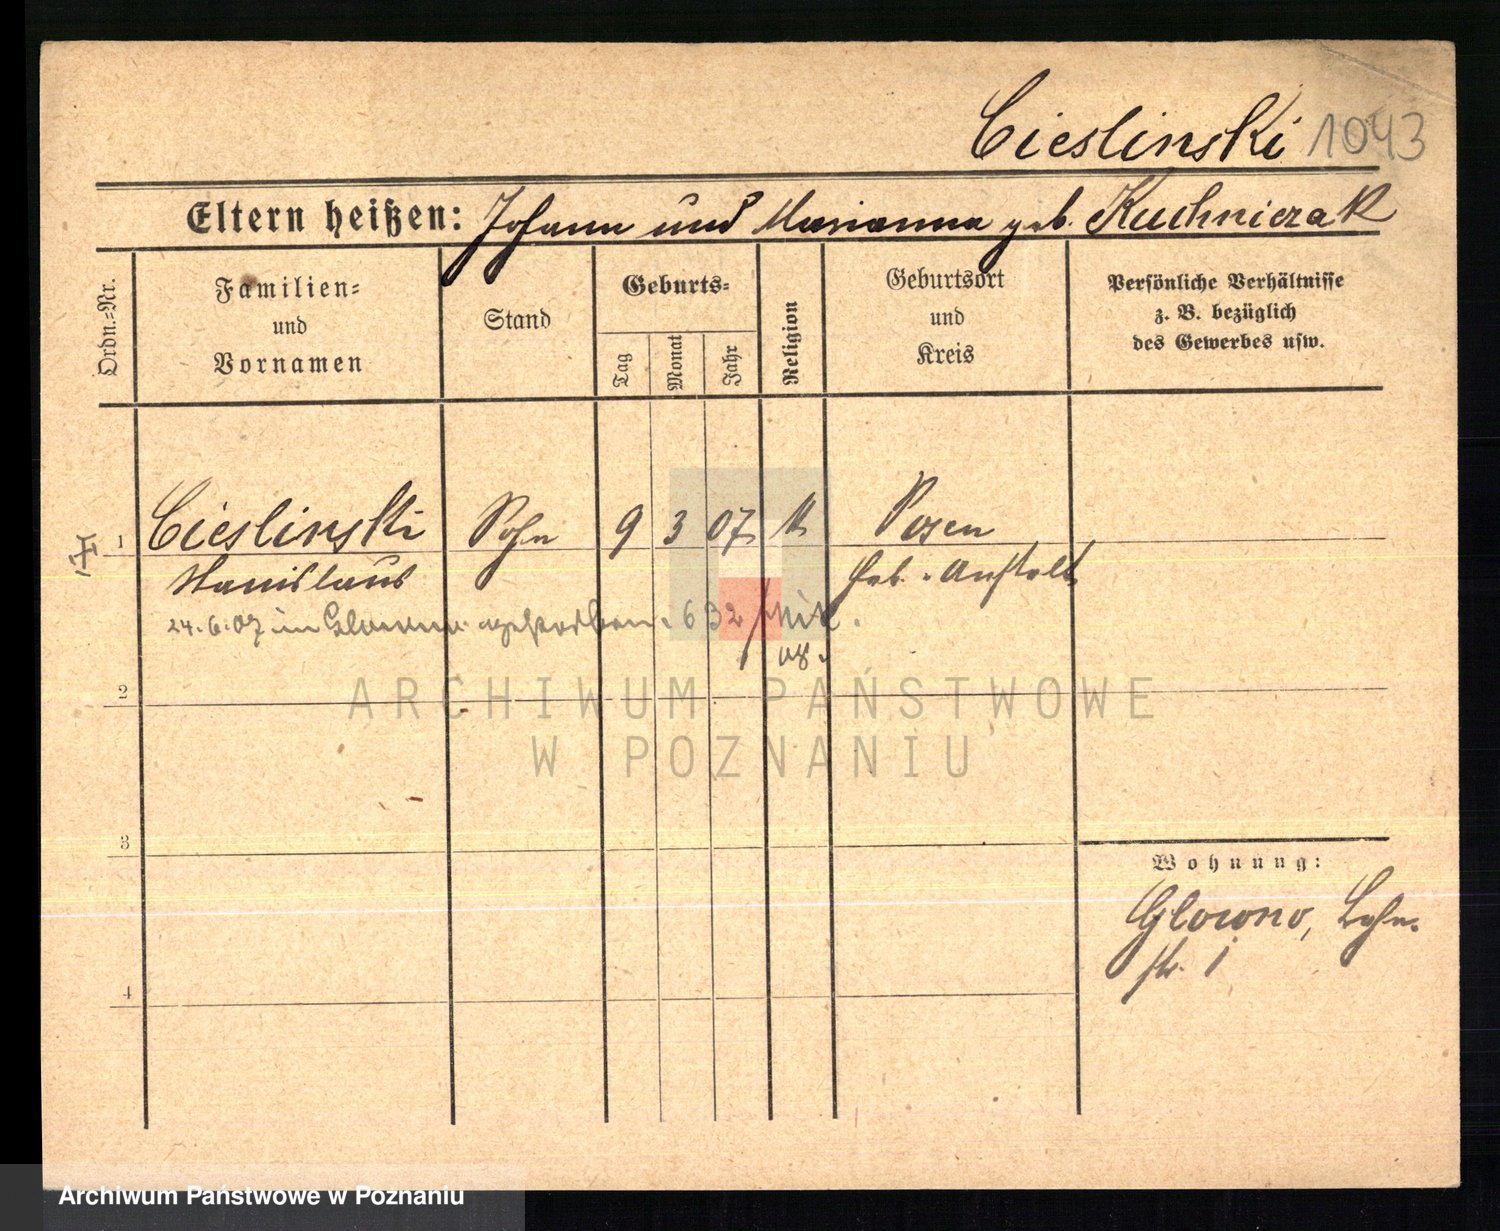 Cieslinski 1043
Eltern heißen: Johann und Marianna geb. Kuchniczak
Ordn.-Nr.
Familien-
und
Vornamen
Stand
Geburts-
Tag
Monat
Jahr
Religion
Geburtsort
und
Kreis
Persönliche Verhältnisse
z. B. bezüglich
des Gewerbes usw.
1 Cieslinski Sohn 9 3 07 K Posen
Stanislaus Geb.-Anstalt
24.6.07 in Glowno gestorben. 632
08.
2
3
4
Wohnung:
Glowno, Bahn-
str. 1
ARCHIWUM PAŃSTWOWE
W POZNANIU
Archiwum Państwowe w Poznaniu